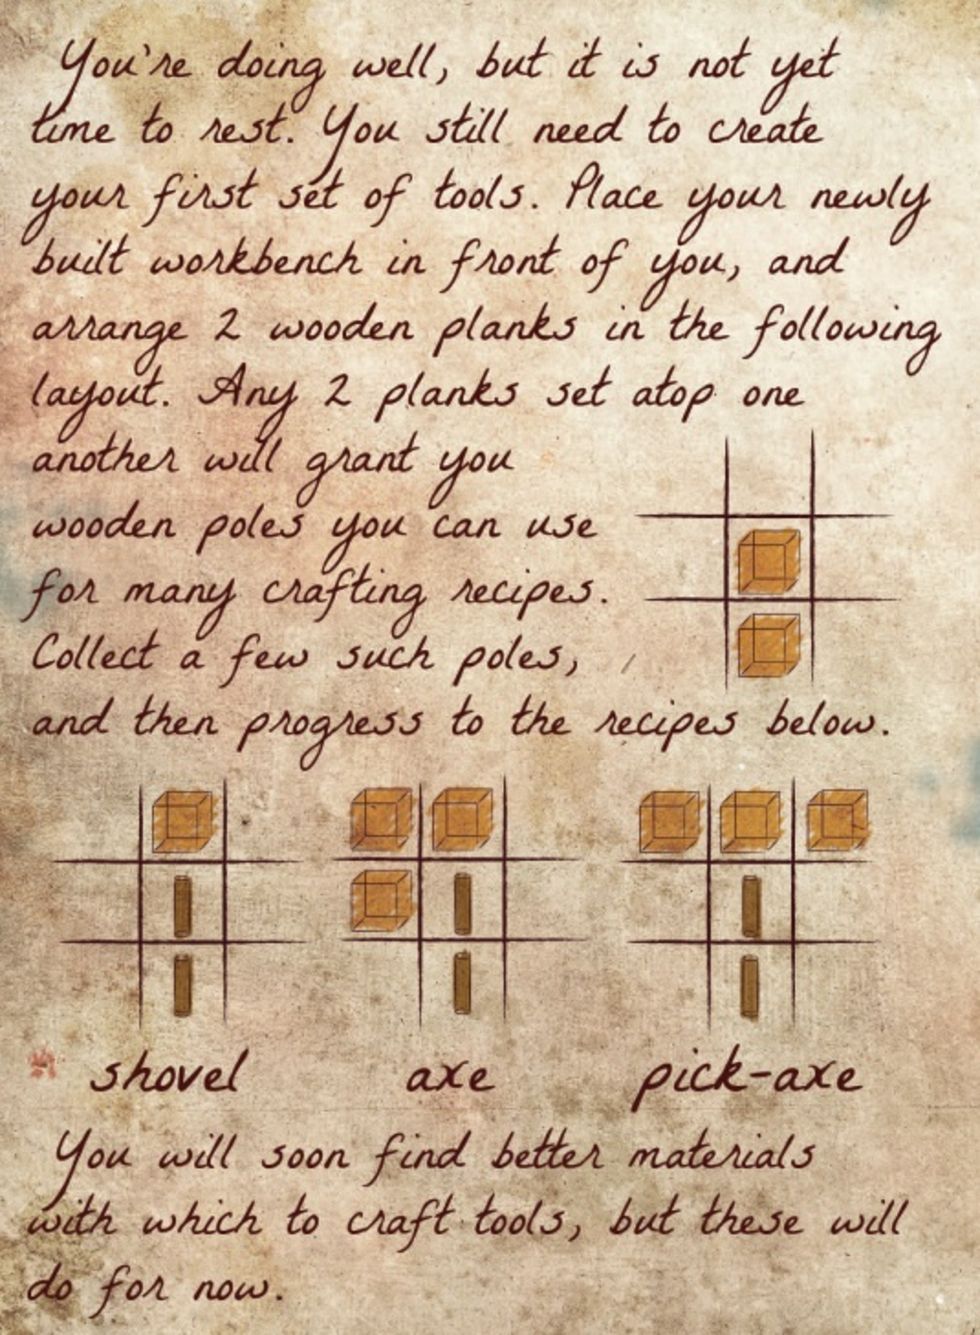 You're doing well, but it is not yet
time to rest. You still need to create
your first set of tools. Place your newly
built workbench in front of you, and
arrange 2 wooden planks in the following
layout. Any 2 planks set atop one
another will grant you
wooden poles you can use
for many crafting recipes.
Collect a few such poles,
and then progress to the recipes below.
shovel
axe
pick-axe
You will soon find better materials
with which to craft tools, but these will
do for now.